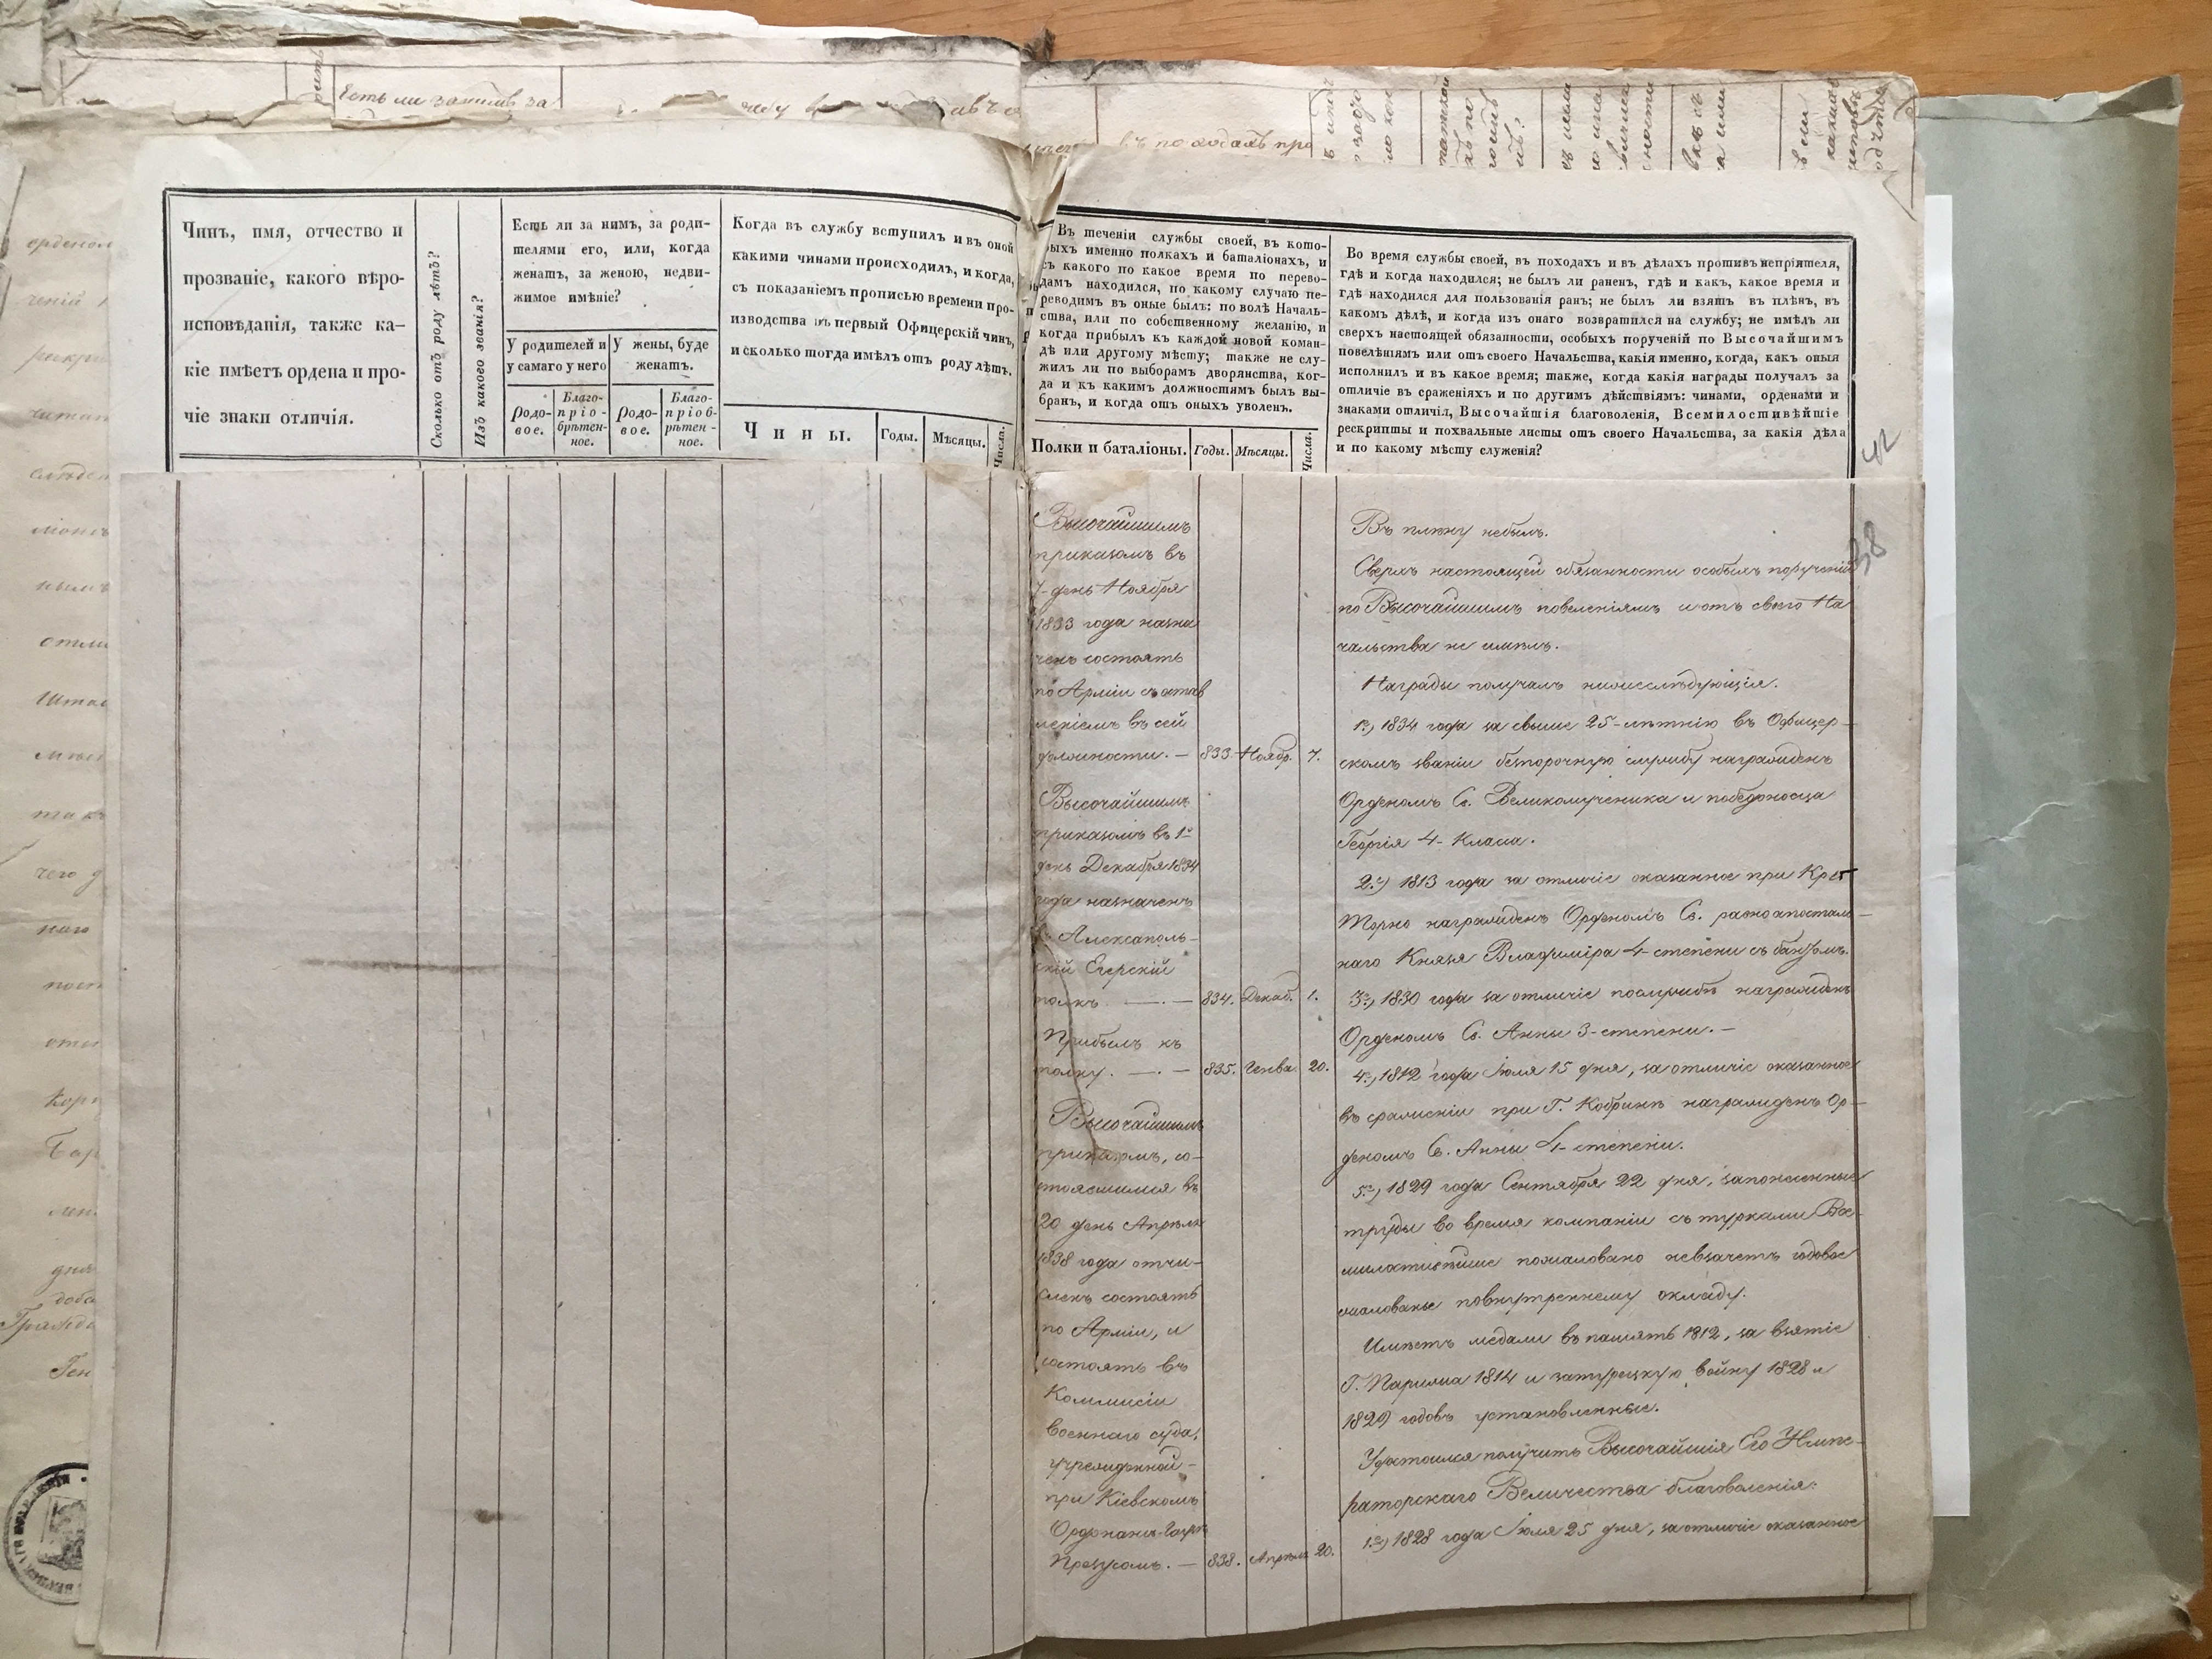 Есть ли за нимъ за
въ походахъ про
Чинъ, имя, отчество и
прозваніе, какого вѣро-
исповѣданія, также ка-
кіе имѣетъ ордена и про-
чіе знаки отличія.
Сколько отъ роду лѣтъ?
Изъ какого званія?
Есть ли за нимъ, за роди-
телями его, или, когда
женатъ, за женою, недви-
жимое имѣніе?
У родителей и
у самаго у него
У жены, буде
женатъ.
Родо-
вое.
Благо-
пріо-
брѣтен-
ное.
Родо-
вое.
Благо-
пріоб-
рѣтен-
ное.
Когда въ службу вступилъ и въ оной
какими чинами происходилъ, и когда,
съ показаніемъ прописью времени про-
изводства въ первый Офицерскій чинъ,
и сколько тогда имѣлъ отъ роду лѣтъ.
Чины.
Годы.
Мѣсяцы.
Числа.
Въ теченіи службы своей, въ кото-
рыхъ именно полкахъ и баталіонахъ, и
съ какого по какое время по перево-
дамъ находился, по какому случаю пе-
реводимъ въ оные былъ: по волѣ Началь-
ства, или по собственному желанію, и
когда прибылъ къ каждой новой коман-
дѣ или другому мѣсту; также не слу-
жилъ ли по выборамъ дворянства, ког-
да и къ какимъ должностямъ былъ вы-
бранъ, и когда отъ оныхъ уволенъ.
Полки и баталіоны.
Годы.
Мѣсяцы.
Числа.
Во время службы своей, въ походахъ и въ дѣлахъ противъ непріятеля,
гдѣ и когда находился; не былъ ли раненъ, гдѣ и какъ, какое время и
гдѣ находился для пользованія ранъ; не былъ ли взятъ въ плѣнъ, въ
какомъ дѣлѣ, и когда изъ онаго возвратился на службу; не имѣлъ ли
сверхъ настоящей обязанности, особыхъ порученій по Высочайшимъ
повелѣніямъ или отъ своего Начальства, какія именно, когда, какъ оныя
исполнилъ и въ какое время; также, когда какія награды получалъ за
отличіе въ сраженіяхъ и по другимъ дѣйствіямъ: чинами, орденами и
знаками отличія, Высочайшія благоволенія, Всемилостивѣйшіе
рескрипты и похвальные листы отъ своего Начальства, за какія дѣла
и по какому мѣсту служенія?
42
38
Высочайшимъ
приказомъ въ
7 день Ноября
1833 года назна
ченъ состоять
по Арміи съ остав
леніемъ въ сей
должности. — 833. Ноябр. 7.
Высочайшимъ
приказомъ въ 1й
день Декабря 1834
года назначенъ
въ Алексополь-
скій Егерскій
полкъ. —.— 834. Декаб. 1.
Прибылъ къ
полку. —.— 835. Генва. 20.
Высочайшимъ
приказомъ, со-
стоявшимся въ
20 день Апрѣля
1838 года отчи-
сленъ состоять
по Арміи, и
состоять въ
Коммисіи
военнаго суда,
учрежденной-
при Кіевскомъ
Ордонансъ-Гаузѣ
Презусомъ. — 838. Апрѣля 20.
Въ плѣну небылъ.
Сверхъ настоящей обязанности особыхъ порученій
по Высочайшимъ повелѣніямъ и отъ своего На
чальства не имѣлъ.
Награды получалъ нижеслѣдующія.
1е, 1834 года за свыше 25-лѣтнію въ Офицер-
скомъ званіи безпорочную службу награжденъ
Орденомъ Св. Великомученика и побѣдоносца
Георгія 4- Класа.
2е, 1813 года за отличіе оказанное при Крѣ
Торно награжденъ Орденомъ Св. равноапостоль-
наго Князя Владиміра 4-степени съ бантомъ.
3е, 1830 года за отличіе послужбѣ награжденъ
Орденомъ Св. Анны 3-степени.—
4е, 1812 года Іюля 15 дня, за отличіе оказанное
въ сраженіи при Г. Кобринѣ награжденъ Ор-
деномъ Св. Анны 4-степени.
5е, 1829 года Сентября 22 дня, запонесенные
труды во время компаніи съ турками Все-
милостивѣйше пожаловано невзачетъ годовое
жалованье повнутреннему окладу.
Имѣетъ медали въ память 1812, за взятіе
Г. Парижа 1814 и затурецкую войну 1828 и
1829 годовъ установленные.
Удостоился получить Высочайшія Его Импе-
раторскаго Величества благоволенія:
1е, 1828 года Іюля 25 дня, за отличіе оказанное